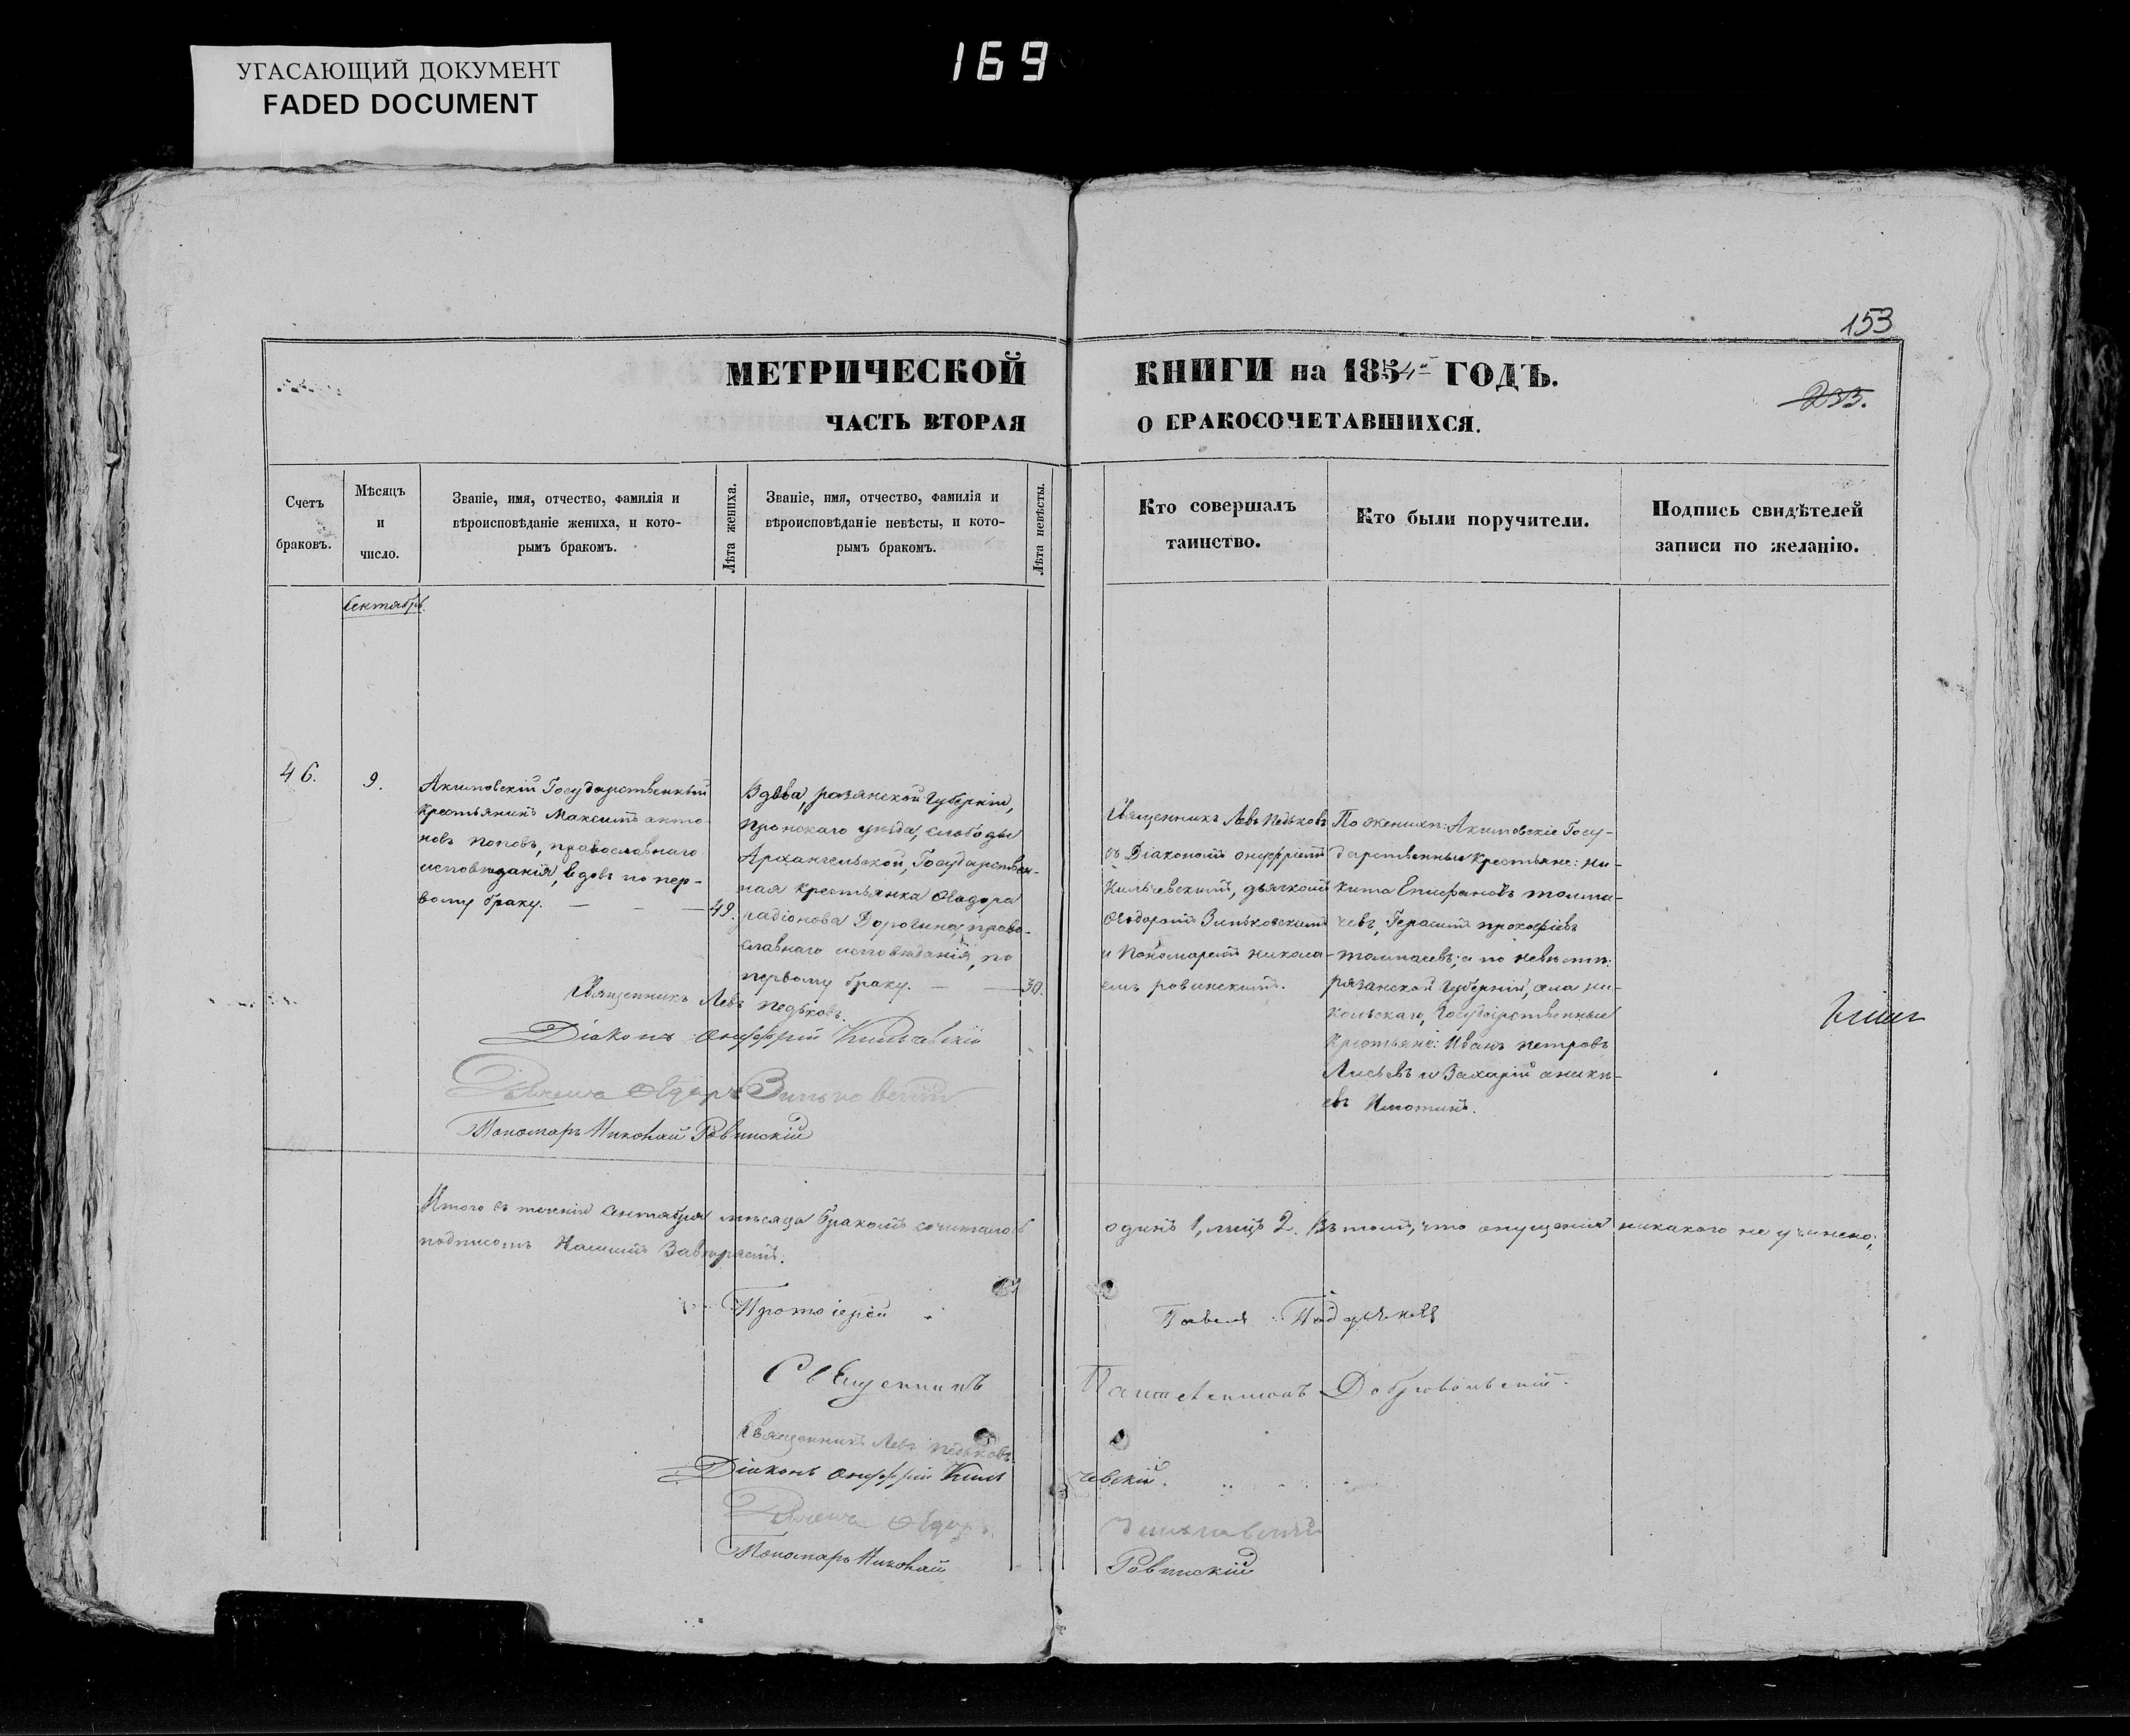 УГАСАЮЩИЙ ДОКУМЕНТ
FADED DOCUMENT
169
153
МЕТРИЧЕСКОЙ
ЧАСТЬ ВТОРАЯ
КНИГИ на 1854й ГОДЪ.
О БРАКОСОЧЕТАВШИХСЯ.
233.
Счетъ
браковъ.
Мѣсяцъ
и
число.
Званіе, имя, отчество, фамилія и
вѣроисповѣданіе жениха, и кото-
рымъ бракомъ.
Лѣта жениха.
Званіе, имя, отчество, фамилія и
вѣроисповѣданіе невѣсты, и кото-
рымъ бракомъ.
Лѣта невѣсты.
Кто совершалъ
таинство.
Кто были поручители.
Подпись свидѣтелей
записи по желанію.
Сентябрь.
46.
9.
Акимовскій Государственный
Крестьянинъ Максимъ анто-
новъ Поповъ, православнаго
исповѣданія, вдовъ по пер-
вому браку. — — —
49.
Вдова, рязанской Губерніи,
Пронскаго уѣзда, слободы
Архангельской, Государствен-
ная крестьянка Ѳеодора
радіонова Дорогина, право-
славнаго исповѣданія, по
первому браку. — —
30.
Священникъ Левъ Педьковъ
съ Діакономъ онуфріемъ
Кильчевскимъ, дьячкомъ
Ѳеодоромъ Зиньковскимъ
и Пономаремъ никола-
емъ ровинскимъ.
По женихѣ: Акимовскіе Госу-
дарственные Крестьяне: Ни-
кита Епифановъ толма-
чевъ, Герасимъ прокофіевъ
толмачевъ; а по невѣстѣ:
рязанской Губерніи, села Ни-
кольскаго, Государственные
Крестьяне: Иванъ петровъ
Лисьевъ и Захарій аники-
евъ
Священникъ Левъ Педьковъ.
Діаконъ Онуфрій Кильчевскій
Дьячекъ Ѳедоръ Зиньковскій
Пономарь Николай Ровинскій
Итого въ теченіи Сентября мѣсяца бракомъ сочиталось одинъ 1, лицъ 2. Въ томъ, что опущенія никакого не учинено;
подписомъ Нашимъ Завѣряемъ.
Протоіерей Павелъ
Священникъ Пантелеимонъ Добровольскій.
Священникъ Левъ Педьковъ.
Діаконъ Онуфрій Кильчевскій.
Дьячекъ Ѳедоръ Зиньковскій
Пономарь Николай Ровинскій